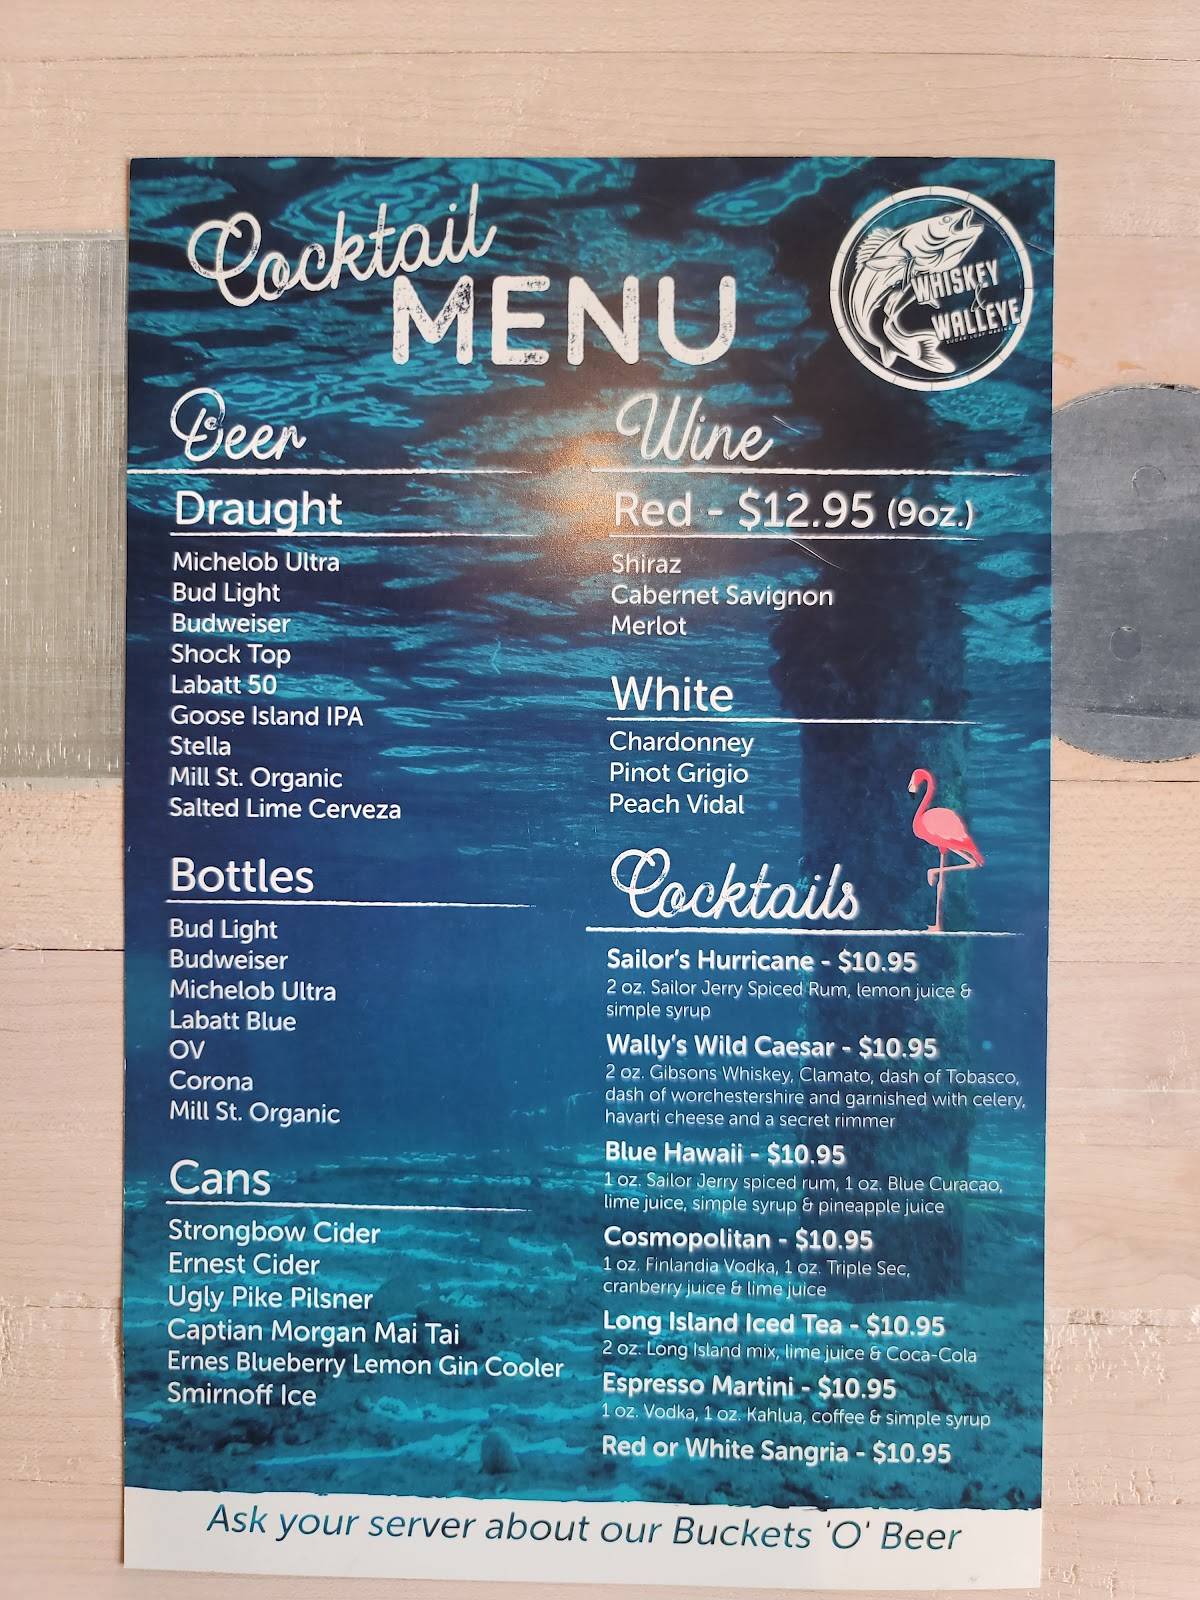 Cocktail
MENU
WHISKEY
&
WALLEYE
Beer
Draught
Michelob Ultra
Bud Light
Budweiser
Shock Top
Labatt 50
Goose Island IPA
Stella
Mill St. Organic
Salted Lime Cerveza
Bottles
Bud Light
Budweiser
Michelob Ultra
Labatt Blue
OV
Corona
Mill St. Organic
Cans
Strongbow Cider
Ernest Cider
Ugly Pike Pilsner
Captian Morgan Mai Tai
Ernes Blueberry Lemon Gin Cooler
Smirnoff Ice
Wine
Red - $12.95 (9oz.)
Shiraz
Cabernet Savignon
Merlot
White
Chardonney
Pinot Grigio
Peach Vidal
Cocktails
Sailor's Hurricane - $10.95
2 oz. Sailor Jerry Spiced Rum, lemon juice &
simple syrup
Wally's Wild Caesar - $10.95
2 oz. Gibsons Whiskey, Clamato, dash of Tobasco,
dash of worchestershire and garnished with celery,
havarti cheese and a secret rimmer
Blue Hawaii - $10.95
1 oz. Sailor Jerry spiced rum, 1 oz. Blue Curacao,
lime juice, simple syrup & pineapple juice
Cosmopolitan - $10.95
1 oz. Finlandia Vodka, 1 oz. Triple Sec,
cranberry juice & lime juice
Long Island Iced Tea - $10.95
2 oz. Long Island mix, lime juice & Coca-Cola
Espresso Martini - $10.95
1 oz. Vodka, 1 oz. Kahlua, coffee & simple syrup
Red or White Sangria - $10.95
Ask your server about our Buckets 'O' Beer